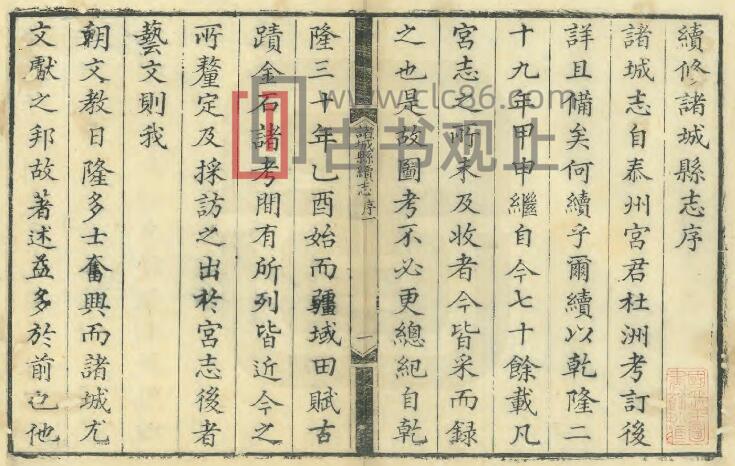 續修諸城縣志序
諸城志自泰州宮君杜洲考訂後
詳且備矣何續乎爾續以乾隆二
十九年甲申繼自今七十餘載凡
宮志之所未及收者今皆采而録
之也是故圖考不必更總紀自乾
諸城縣續志 序一
一
隆三十年乙酉始而疆域田賦古
蹟金石諸考間有所列皆近今之
所釐定及採訪之出於宮志後者
藝文則我
朝文教日隆多士奮興而諸城尤
文獻之邦故著述益多於前也他
www.clc86.com
古书观止